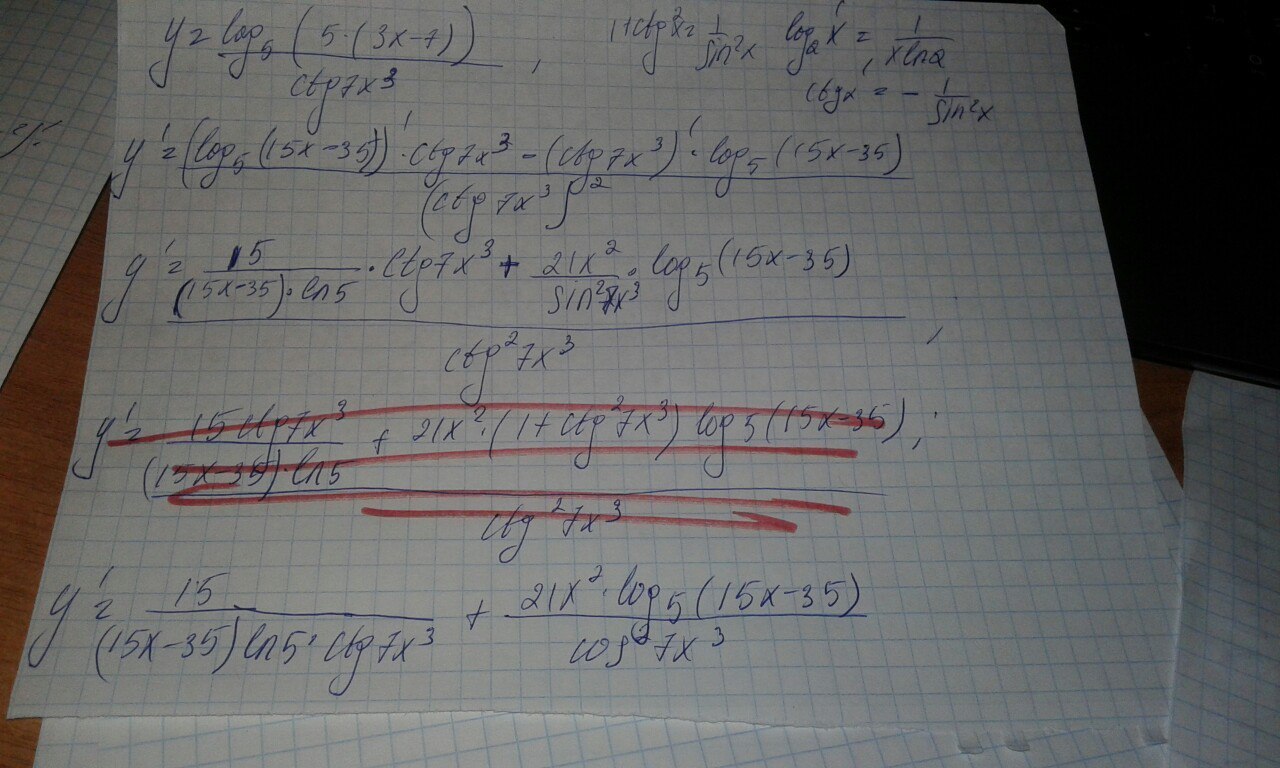 y = log₅(5·(3x-7)) / ctg7x³ ,
1+ctg²x = 1/sin²x logₐx' = 1/(x lna) ,
ctgx' = - 1/sin²x
y' = ((log₅(15x-35))'·ctg7x³ - (ctg7x³)'·log₅(15x-35)) / (ctg7x³)²
y' = (15/((15x-35)·ln5)·ctg7x³ + 21x²/sin²7x³·log₅(15x-35)) / ctg²7x³ ,
y' = (15ctg7x³/((15x-35)·ln5) + 21x²·(1+ctg²7x³) log₅(15x-35)) / ctg²7x³ ;
y' = 15/((15x-35)ln5·ctg7x³) + 21x²·log₅(15x-35)/cos²7x³